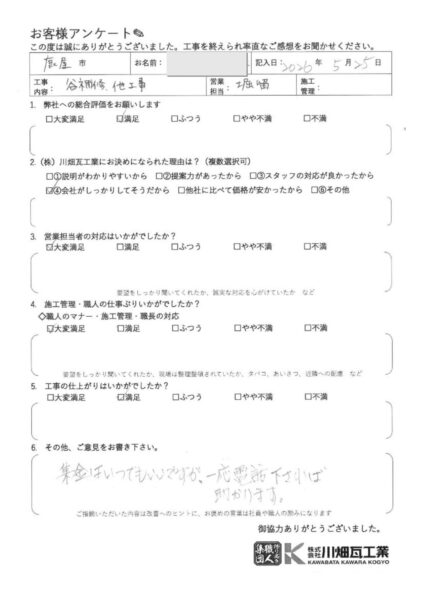 お客様アンケート✎
この度は誠にありがとうございました。工事を終えられ率直なご感想をお聞かせください。
市 お名前: 記入日 2026年 5月25日
工事内容: 谷補修、他工事 営業担当: 堀 施工管理:
1. 弊社への総合評価をお願いします
□大変満足 ☑満足 □ふつう □やや不満 □不満
2.(株)川畑瓦工業にお決めになられた理由は？(複数選択可)
□①説明がわかりやすいから □②提案力があったから □③スタッフの対応が良かったから
☑④会社がしっかりしてそうだから □⑤他社に比べて価格が安かったから □⑥その他
3. 営業担当者の対応はいかがでしたか？
☑大変満足 □満足 □ふつう □やや不満 □不満
要望をしっかり聞いてくれたか、誠実な対応を心がけていたか など
4. 施工管理・職人の仕事ぶりいかがでしたか？
◇職人のマナー・施工管理・職長の対応
☑大変満足 □満足 □ふつう □やや不満 □不満
要望をしっかり聞いてくれたか、現場は整理整頓されていたか、タバコ、あいさつ、近隣への配慮 など
5. 工事の仕上がりはいかがでしたか？
□大変満足 ☑満足 □ふつう □やや不満 □不満
6. その他、ご意見をお書き下さい。
集金はいつでもいいですが、一応電話下されば
助かります。
ご指摘いただいた内容は改善へのヒントに、お褒めの言葉は社員や職人の励みになります
御協力ありがとうございました。
職人集団 株式会社川畑瓦工業
KAWABATA KAWARA KOGYO